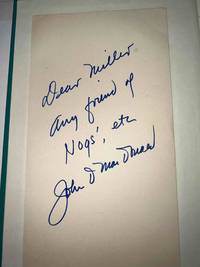 Dear Miller
any friend of
Nogs', etc
John D MacDonald